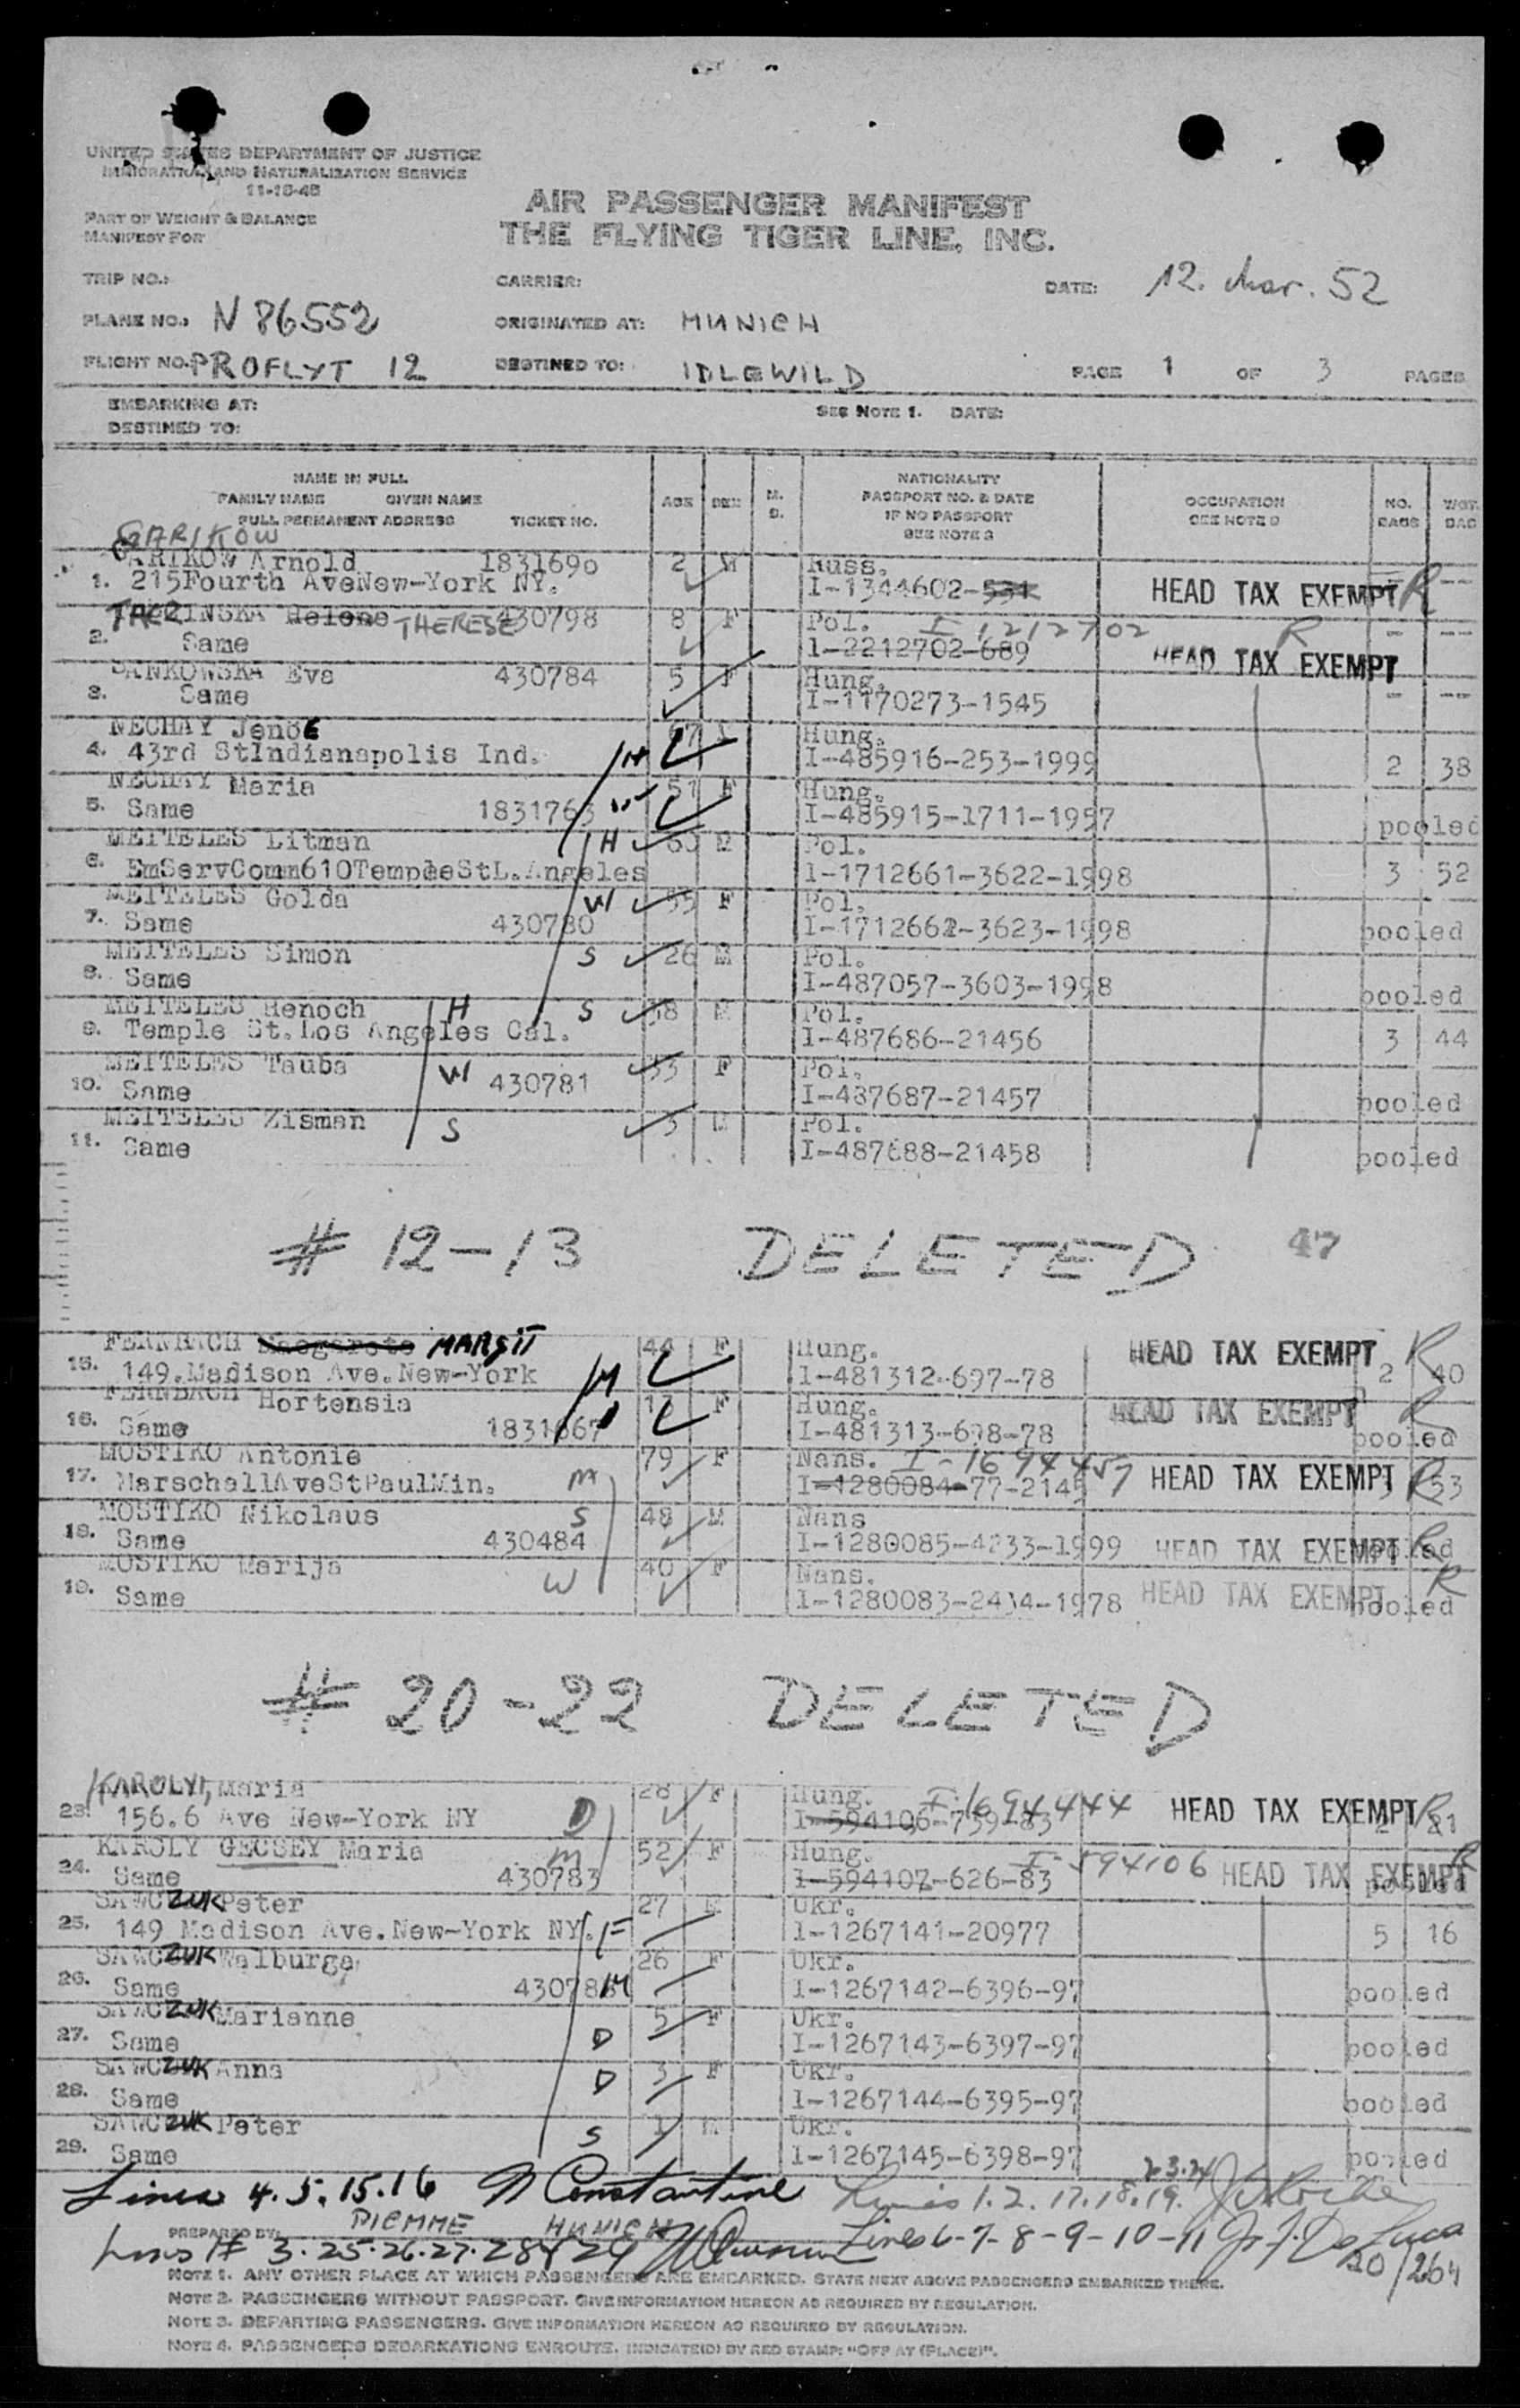 UNITED STATES DEPARTMENT OF JUSTICE
IMMIGRATION AND NATURALIZATION SERVICE
11-18-48
PART OF WEIGHT & BALANCE
MANIFEST FOR
AIR PASSENGER MANIFEST
THE FLYING TIGER LINE, INC.
TRIP NO.: CARRIER: DATE: 12. Mar. 52
PLANE NO.: N 86552 ORIGINATED AT: MUNICH
FLIGHT NO. PROFLYT 12 DESTINED TO: IDLEWILD PAGE 1 OF 3 PAGES
EMBARKING AT: SEE NOTE 1. DATE:
DESTINED TO:
NAME IN FULL
FAMILY NAME GIVEN NAME
FULL PERMANENT ADDRESS TICKET NO.
AGE SEX M. S.
NATIONALITY
PASSPORT NO. & DATE
IF NO PASSPORT
SEE NOTE 2
OCCUPATION
SEE NOTE 3
NO. BAGS
WGT. BAG
GARIKOW
ARIKOW Arnold 1831690 2 M Russ.
1. 215Fourth AveNew-York NY. I-1344602-531 HEAD TAX EXEMPT R --
INSKA Helene THERESE 430798 8 F Pol. I 1212702
2. Same I-2212702-689 HEAD TAX EXEMPT R - --
SANKOWSKA Eva 430784 5 F Hung.
3. Same I-1170273-1545 - --
NECHAY Jenoe 67 Hung.
4. 43rd StIndianapolis Ind. H I-485916-253-1999 2 38
NECHAY Maria 51 F Hung.
5. Same 1831763 W I-485915-1711-1957 pooled
MEITELES Litman H 60 M Pol.
6. EmServComm610TempleStL.Angeles I-1712661-3622-1998 3 52
MEITELES Golda W 55 F Pol.
7. Same 430780 I-1712662-3623-1998 pooled
MEITELES Simon S 26 M Pol.
8. Same I-487057-3603-1998 pooled
MEITELES Henoch H S 38 M Pol.
9. Temple St.Los Angeles Cal. I-487686-21456 3 44
MEITELES Tauba W 33 F Pol.
10. Same 430781 I-487687-21457 pooled
MEITELES Zisman S 3 M Pol.
11. Same I-487688-21458 pooled
# 12-13 DELETED 47
FERNBACH MARGIT 44 F Hung. HEAD TAX EXEMPT R
15. 149.Madison Ave.New-York M I-481312-697-78 2 40
FERNBACH Hortensia 13 F Hung. HEAD TAX EXEMPT R
16. Same 1831667 D I-481313-698-78 pooled
MOSTIKO Antonie 79 F Nans. I-1694457
17. MarschallAveStPaulMin. M I-1280084-77-2145 HEAD TAX EXEMPT R 3 53
MOSTIKO Nikolaus S 48 M Nans
18. Same 430484 I-1280085-4233-1999 HEAD TAX EXEMPT R pooled
MOSTIKO Marija 40 F Nans.
19. Same W I-1280083-2434-1978 HEAD TAX EXEMPT R pooled
# 20-22 DELETED
KAROLYI, Maria 28 F Hung. I-1694444 HEAD TAX EXEMPT R
23. 156.6 Ave New-York NY D I-594106-759-83 2 21
KAROLY GECSEY Maria M 52 F Hung. I-594106 HEAD TAX EXEMPT R
24. Same 430783 I-594107-626-83 pooled
SAWCZUK Peter 27 M Ukr.
25. 149 Madison Ave.New-York NY. F I-1267141-20977 5 16
SAWCZUK Walburga 26 F Ukr.
26. Same 430788 M I-1267142-6396-97 pooled
SAWCZUK Marianne 5 F Ukr.
27. Same D I-1267143-6397-97 pooled
SAWCZUK Anna D 3 F Ukr.
28. Same I-1267144-6395-97 pooled
SAWCZUK Peter S 1 M Ukr.
29. Same I-1267145-6398-97 pooled
Lines 4.5.15.16 Constantine Lines 1.2.17.18.19. 23.24
PREPARED BY: DIEMME MUNICH Lines 6-7-8-9-10-11 De Luca
Lines # 3.25.26.27.28 & 29 20/264
NOTE 1. ANY OTHER PLACE AT WHICH PASSENGERS ARE EMBARKED. STATE NEXT ABOVE PASSENGERS EMBARKED THERE.
NOTE 2. PASSENGERS WITHOUT PASSPORT. GIVE INFORMATION HEREON AS REQUIRED BY REGULATION.
NOTE 3. DEPARTING PASSENGERS. GIVE INFORMATION HEREON AS REQUIRED BY REGULATION.
NOTE 4. PASSENGERS DEBARKATIONS ENROUTE. INDICATE(D) BY RED STAMP: "OFF AT (PLACE)".